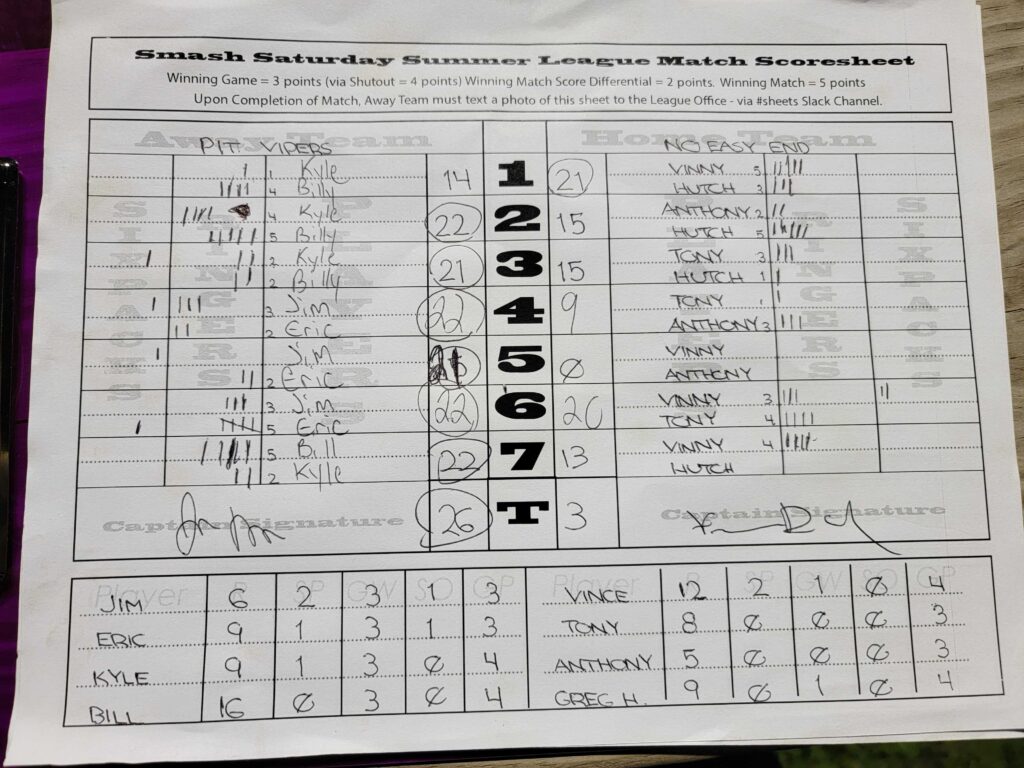 Smash Saturday Summer League Match Scoresheet
Winning Game = 3 points (via Shutout = 4 points) Winning Match Score Differential = 2 points. Winning Match = 5 points
Upon Completion of Match, Away Team must text a photo of this sheet to the League Office - via #sheets Slack Channel.
Away Team Home Team
PIT VIPERS NO EASY END
1 Kyle 14 1 21 VINNY 5
4 Billy HUTCH 3
4 Kyle 22 2 15 ANTHONY 2
5 Billy HUTCH 5
2 Kyle 21 3 15 TONY 3
2 Billy HUTCH 1
3 Jim 22 4 9 TONY 1
2 Eric ANTHONY 3
Jim 5 0 VINNY
2 Eric ANTHONY
3 Jim 22 6 20 VINNY 3
5 Eric TONY 4
5 Bill 22 7 13 VINNY 4
2 Kyle HUTCH
SIXPACKS RINGERS PLAYERS PLAYERS RINGERS SIXPACKS
Captain Signature 26 T 3 Captain Signature
Player R SP GW SO GP Player R SP GW SO GP
JIM 6 2 3 1 3 VINCE 12 2 1 0 4
ERIC 9 1 3 1 3 TONY 8 0 0 0 3
KYLE 9 1 3 0 4 ANTHONY 5 0 0 0 3
BILL 16 0 3 0 4 GREG H. 9 0 1 0 4